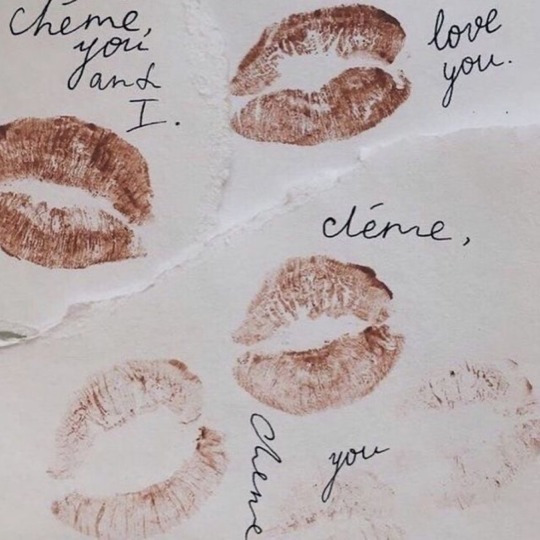 chéme,
you
and
I.
love
you.
cléme,
you
Cheme